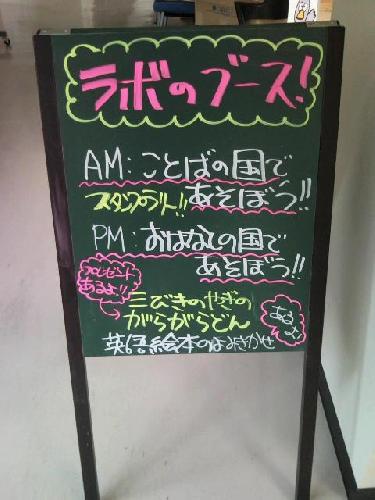 ラボのブース!
AM:ことばの国で
スタンプラリー!! あそぼう!!
PM:おはなしの国で
あそぼう!!
プレゼント
あるよ!!
三びきのやぎの
がらがらどん
あるよ!
英語絵本のよみきかせ